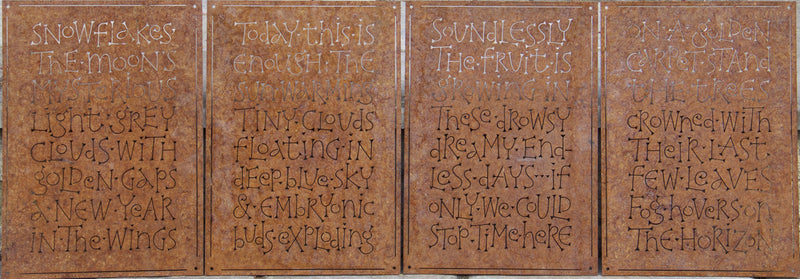 SNOWFLAKES
THE·MOON'S
MYSTERIOUS
LIGHT·GREY
CLOUDS·WITH
GOLDEN·GAPS
A·NEW·YEAR
IN·THE·WINGS
TODAY·THIS·IS
ENOUGH·THE
SUN·WARMING
TINY·CLOUDS
FLOATING·IN
DEEP·BLUE·SKY
&·EMBRYONIC
BUDS·EXPLODING
SOUNDLESSLY
THE·FRUIT·IS
GROWING·IN
THESE·DROWSY
DREAMY·END-
LESS·DAYS···IF
ONLY·WE·COULD
STOP·TIME·HERE
ON·A·GOLDEN
CARPET·STAND
THE·TREES
CROWNED·WITH
THEIR·LAST
FEW·LEAVES
FOG·HOVERS·ON
THE·HORIZON